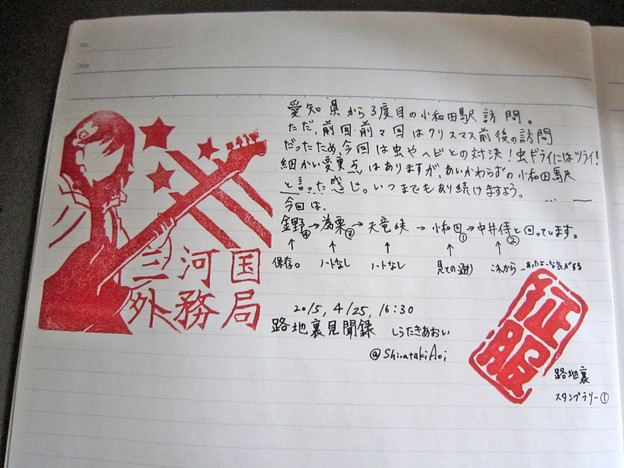 No.
Date
愛知県から3度目の小和田駅訪問。
ただ、前回前々回はクリスマス前後の訪問
だったため、今回は虫やヘビとの対決！虫ギライにはツライ！
細かい変更点はありますがあいかわらずの小和田駅
と言った感じ。いつまでもあり続けますよう。
今回は、
金野→為栗→天竜峡→小和田→中井侍と回っています。
④ ③ ① ②
保存。 ノートなし ノートなし 見ての通り これから
三河国
外務局
2015, 4/25, 16:30
路地裏見聞録 しらたきあおい
@ShiratakiAoi
征服
路地裏
スタンプラリー①